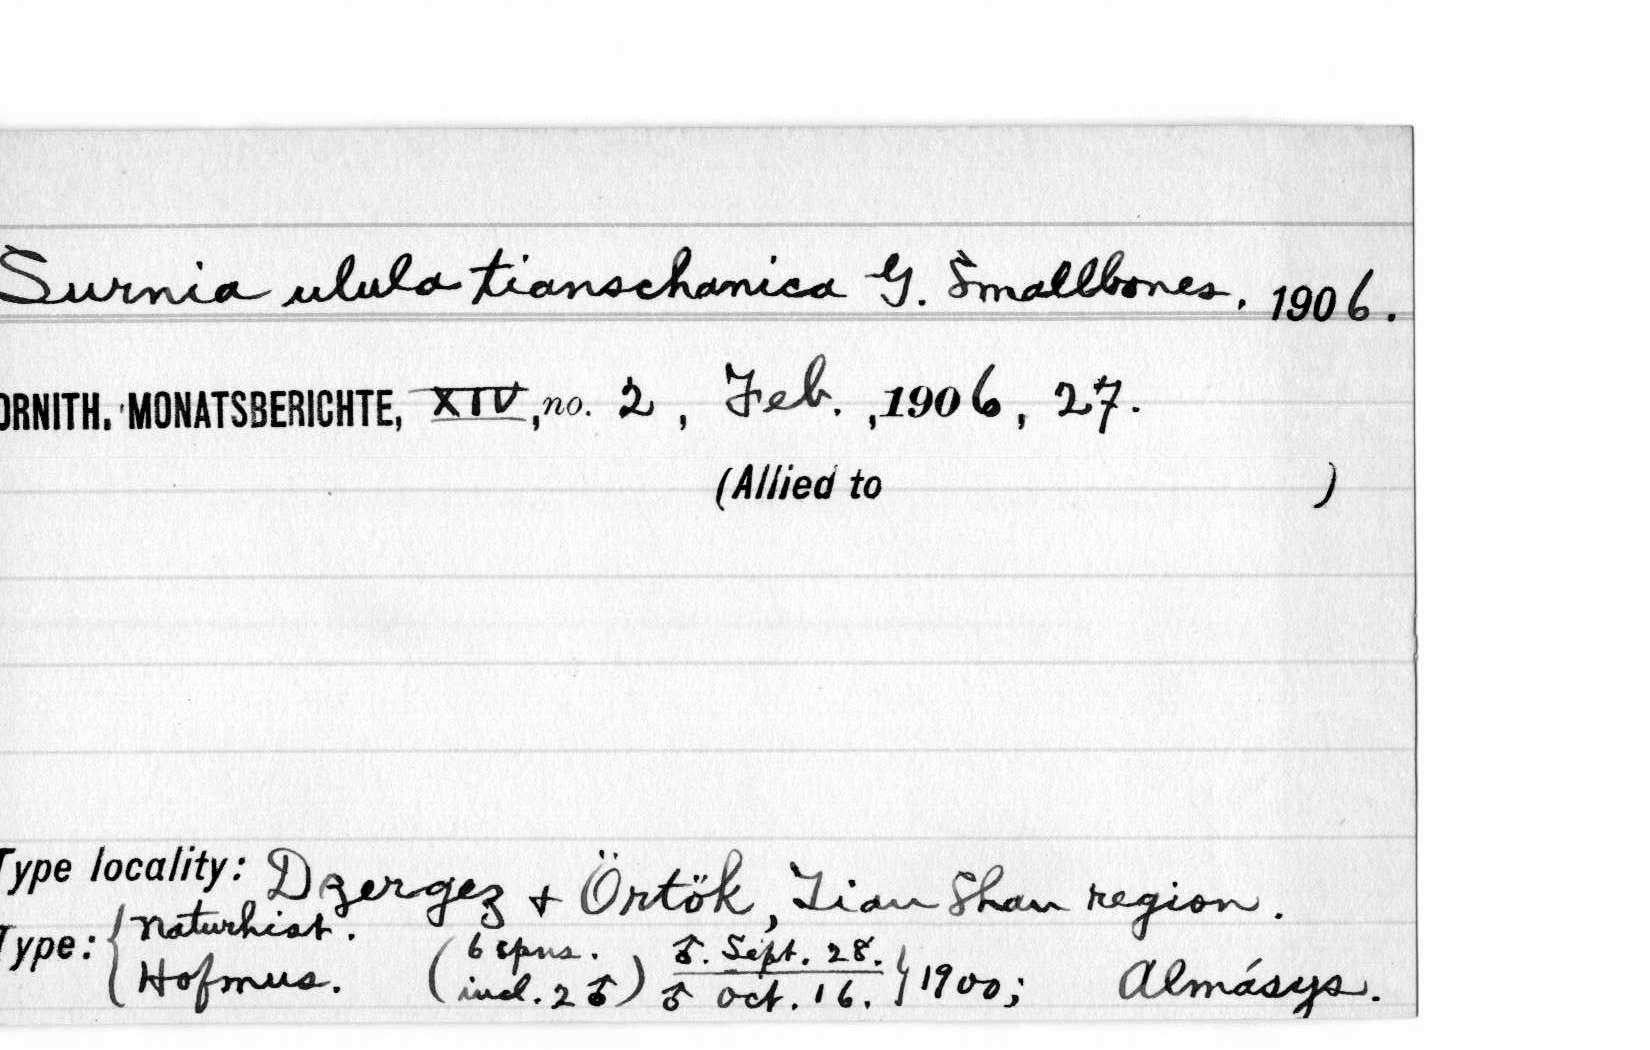 Surnia ulula tianschanica G. Smallbones. 1906.
ORNITH. MONATSBERICHTE, XIV, no. 2, Feb., 1906, 27.
(Allied to )
Type locality: Dzergez + Örtök, Tian Shan region.
Type: { Naturhist. (6 spns. ♂. Sept. 28. } 1900; Almásys.
Hofmus. incl. 2 ♂) ♂ Oct. 16.